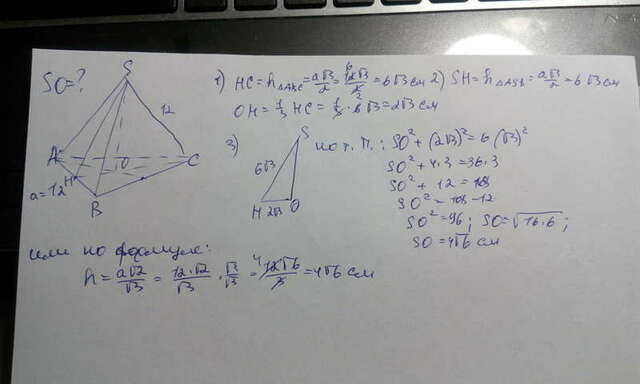 SO=?
S
12
A
O
C
H
a=12
B
1) HC = h△ABC = a√3/2 = 12√3/2 = 6√3 см
2) SH = h△ASB = a√3/2 = 6√3 см
OH = 1/3 HC = 1/3 · 6√3 = 2√3 см
3)
S
6√3
H 2√3 O
по т. П.: SO² + (2√3)² = 6(√3)²
SO² + 4·3 = 36·3
SO² + 12 = 108
SO² = 108-12
SO² = 96; SO = √16·6;
SO = 4√6 см
или по формуле:
h = a√2/√3 = 12·√2/√3 · √3/√3 = 12√6/3 = 4√6 см